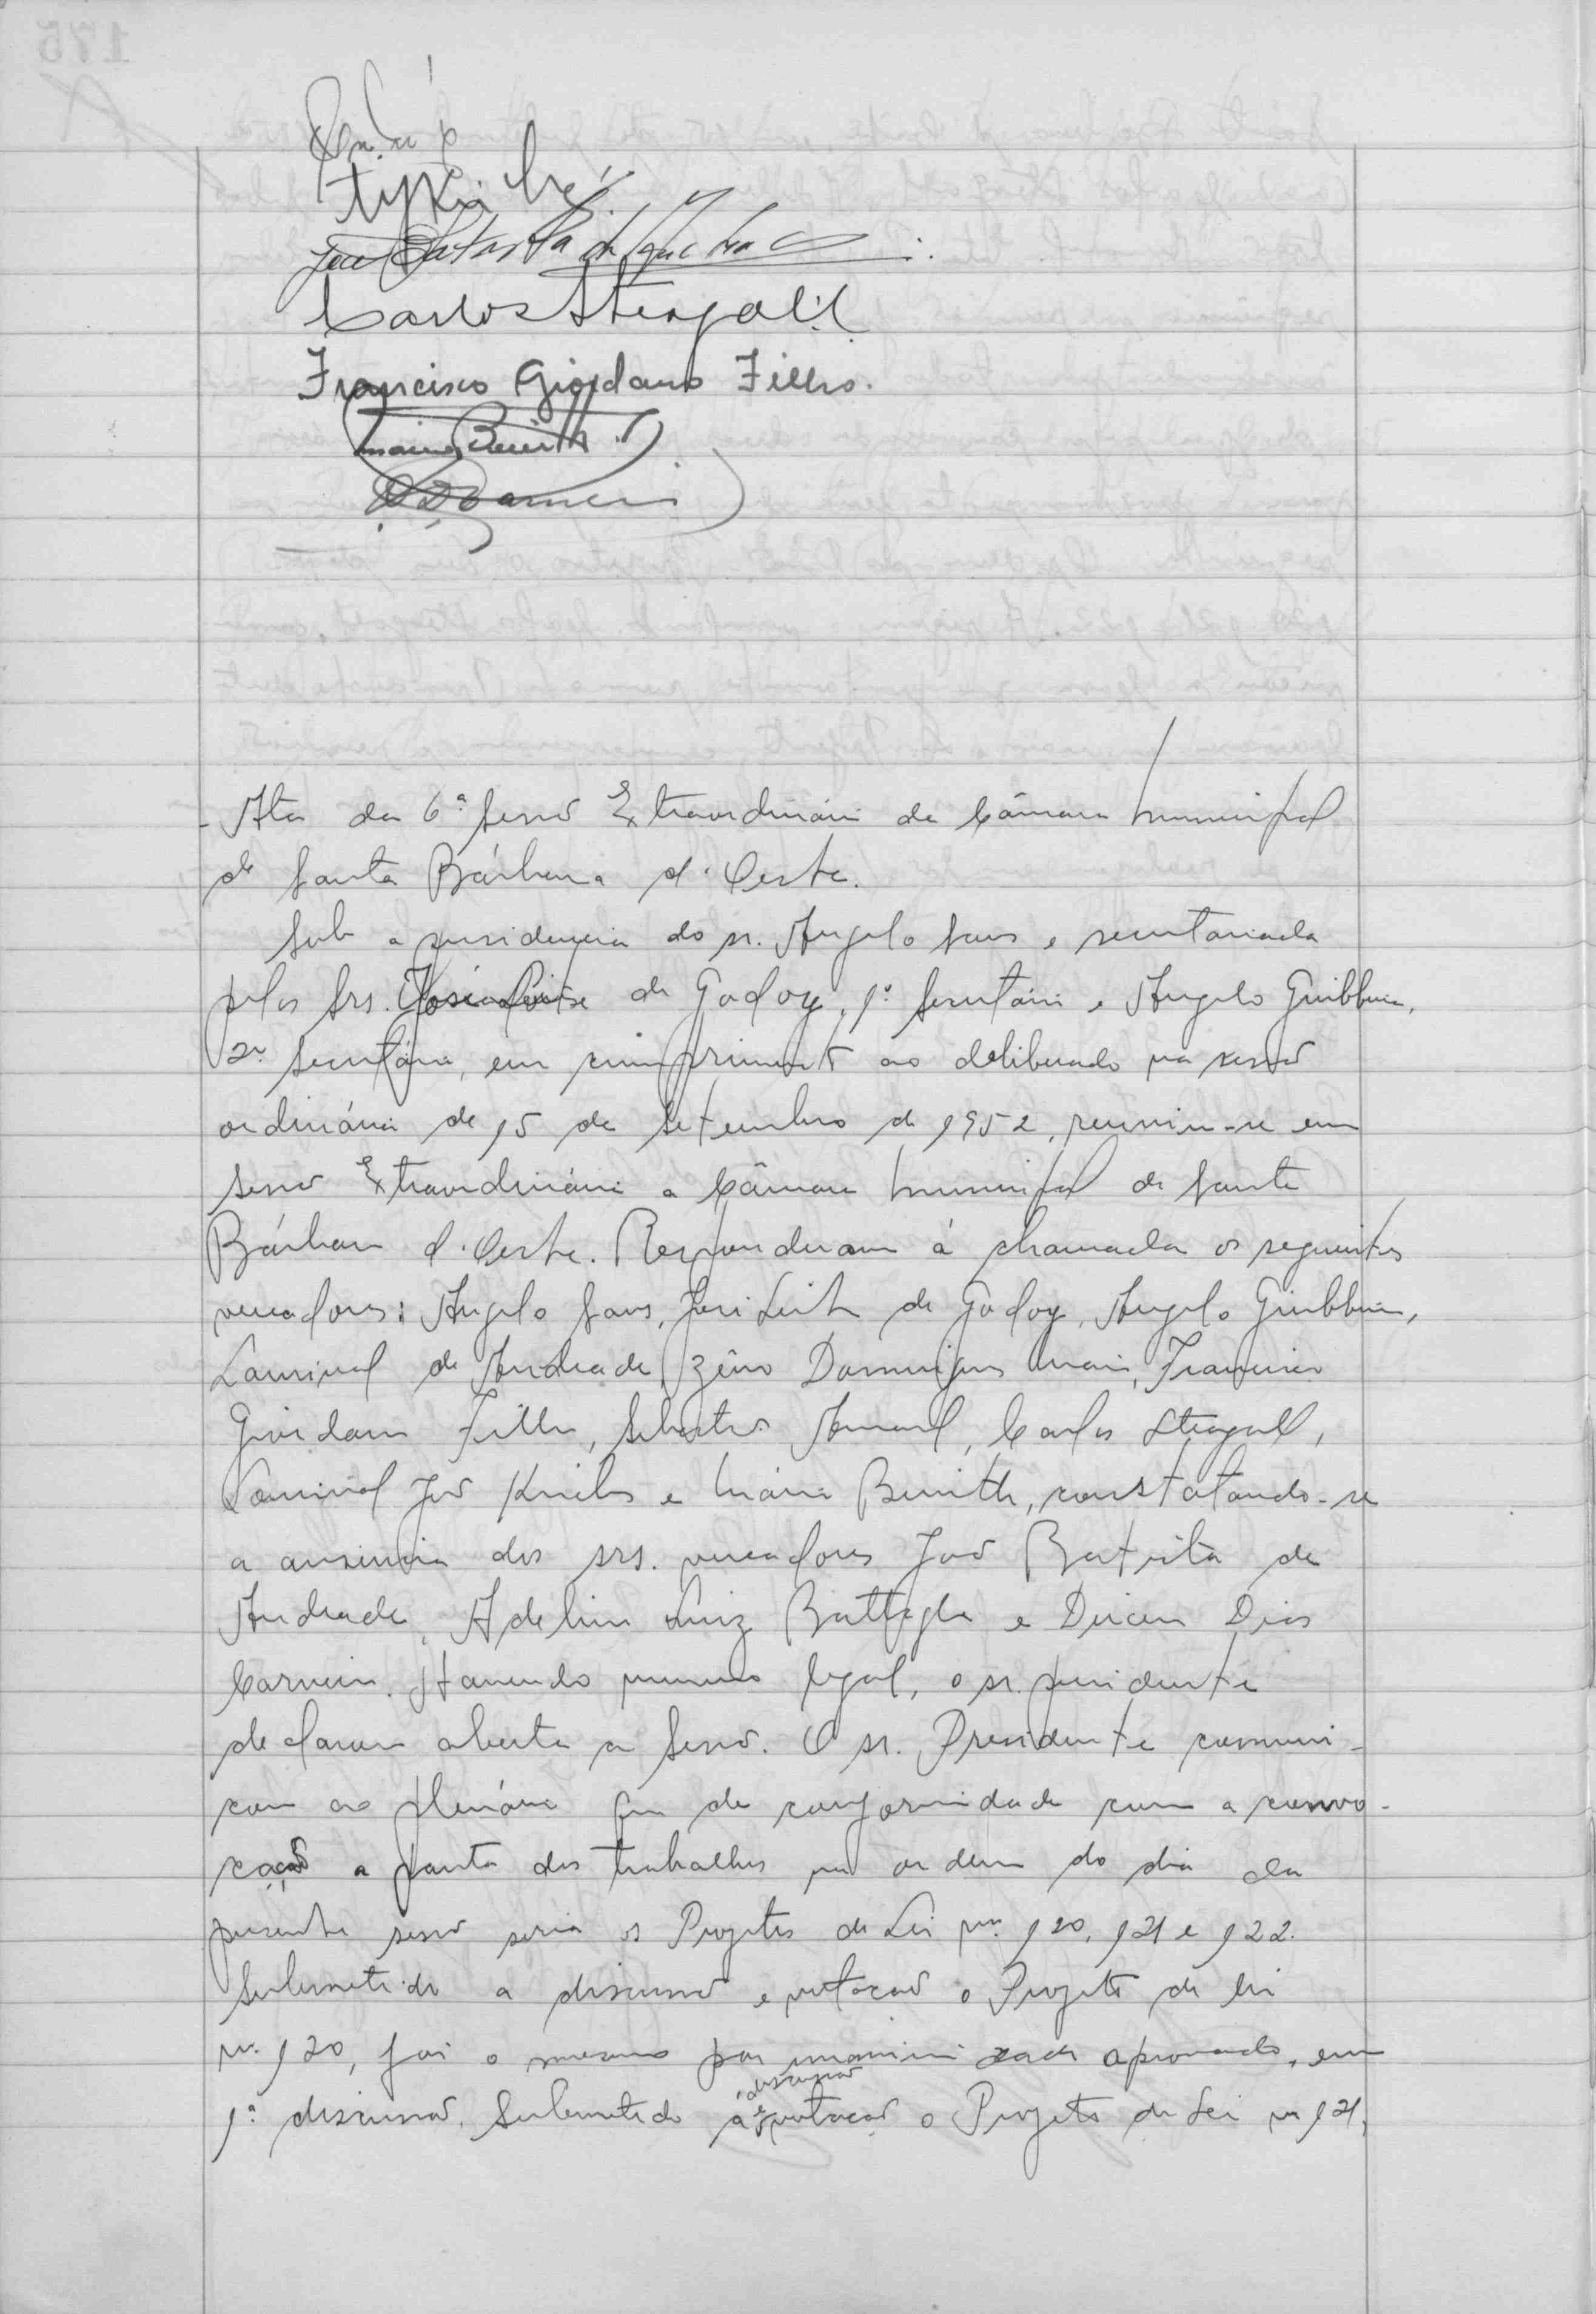 Carlos Steagall
Francisco Giordano Filho.
Mario Benith
- Ata da 6ª sessão Extraordinária da Câmara Municipal
de Santa Bárbara d'Oeste.
Sob a presidencia do sr. Angelo Sans e secretariada
pelos srs. José Leite de Godoy, 1º secretário e Angelo Giubbina,
2º secretário, em cumprimento ao deliberado na sessão
ordinária de 15 de setembro de 1952, reuniu-se em
sessão Extraordinária a Câmara Municipal de Santa
Bárbara d'Oeste. Responderam á chamada os seguintes
vereadores: Angelo Sans, José Leite de Godoy, Angelo Giubbina,
Laurival de Andrade, Zêno Domingos Maia, Francisco
Giordano Filho, Amaral, Carlos Steagall,
João e Mário Benith, constatando-se
a ausencia dos srs. vereadores João Batista de
Andrade, Adelino Luiz Battaglia e Dirceu Dias
Carneiro. Havendo numero legal, o sr. presidente
declarou aberta a sessão. O sr. Presidente comuni-
cou ao plenário que de conformidade com a convo-
cação a pauta dos trabalhos na ordem do dia da
presente sessão seria os Projetos de Lei nº 120, 121 e 122.
Submetido a discussão e votação o Projeto de lei
nº 120, foi o mesmo por unanimidade aprovado, em
discussão
1ª discussão. Submetido á e votação o Projeto de Lei nº 121,